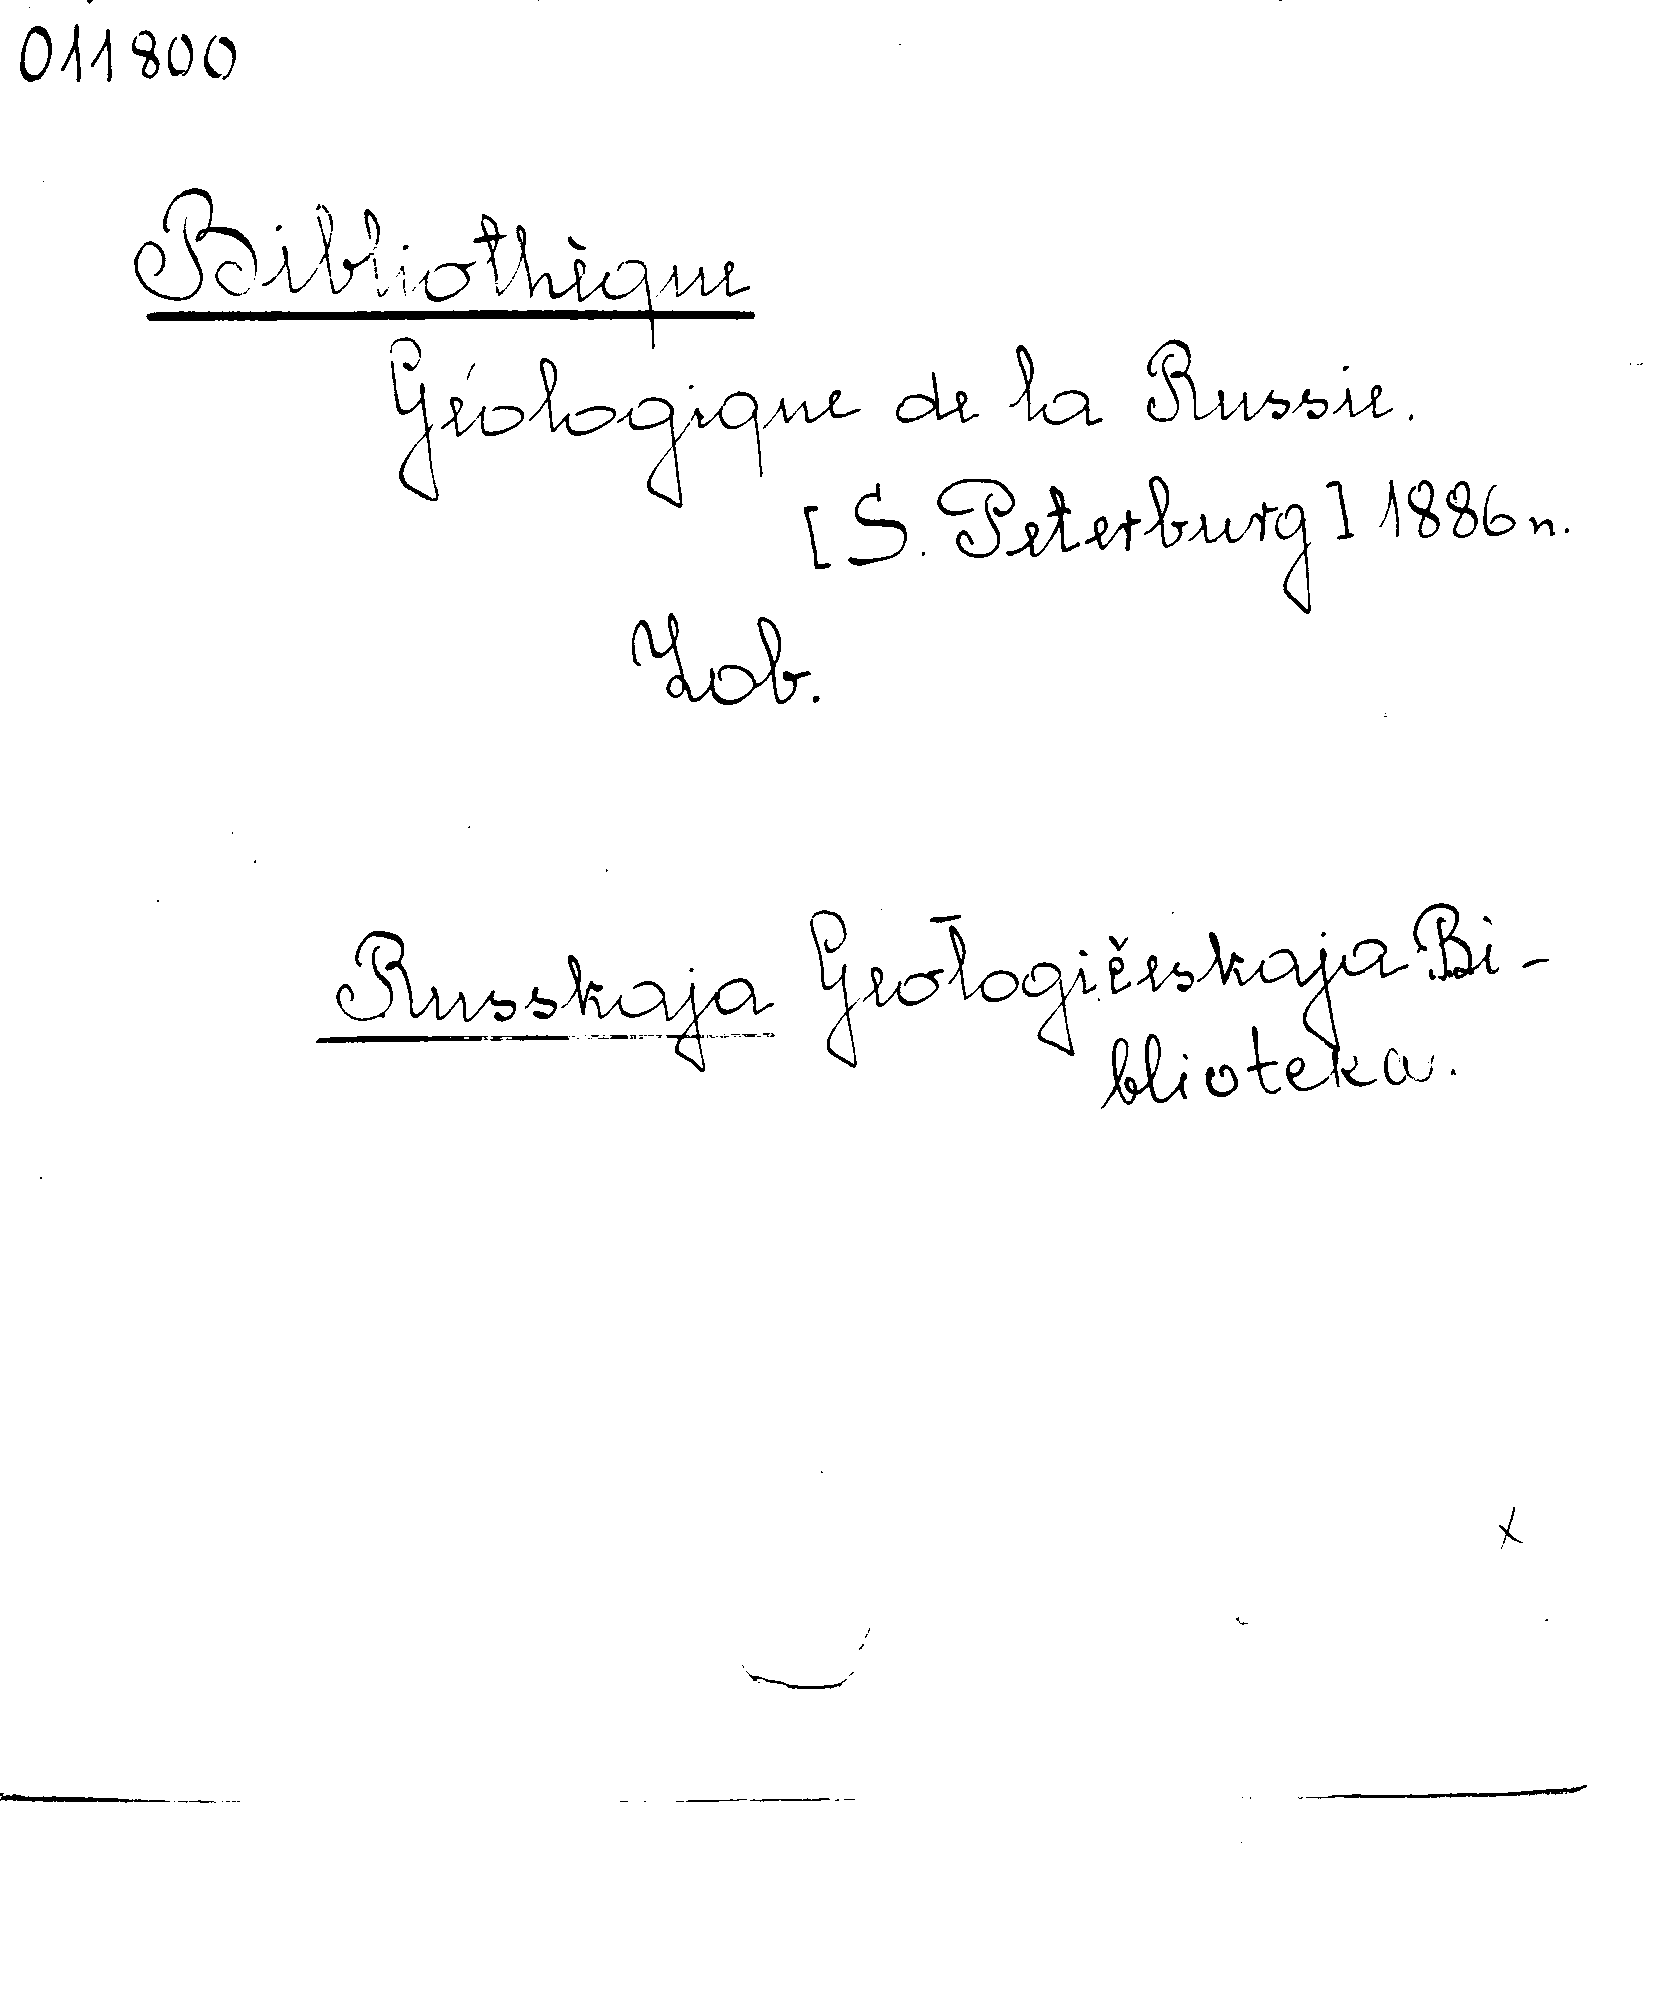 011800
Bibliothèque
Géologique de la Russie.
[S. Peterburg] 1886 n.
Zob.
Russkaja Geologičeskaja Bi-
blioteka.
x